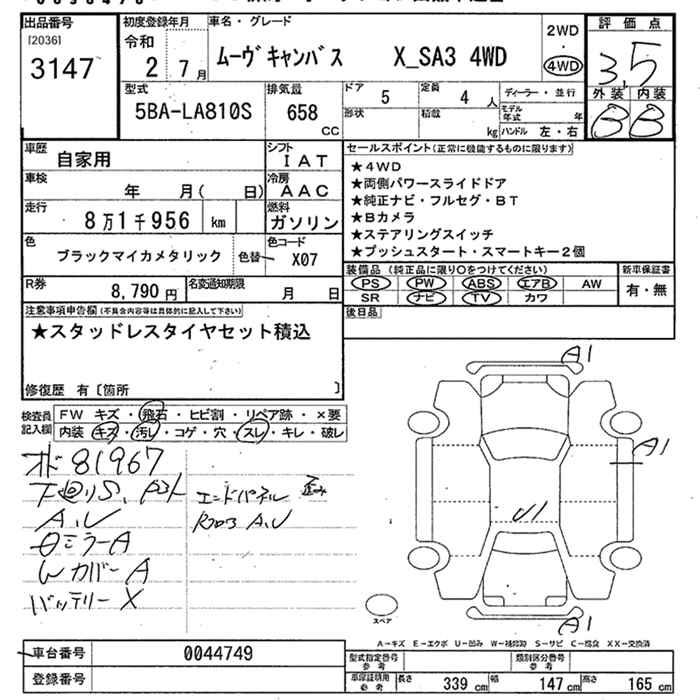 出品番号
[2036]
3147
初度登録年月
令和
2 7月
車名・グレード
ムーヴキャンバス X_SA3 4WD
2WD
・
4WD
評価点
3.5
外装 内装
B B
型式
5BA-LA810S
排気量
658
CC
ドア
5
定員
4人
形状
積載
kg
ディーラー・並行
モデル年式 年
ハンドル 左・右
車歴
自家用
シフト
IAT
車検
年 月( 日)
冷房
AAC
走行
8万1千956 km
燃料
ガソリン
色
ブラックマイカメタリック
色替
色コード
X07
R券
8,790円
名変通知期限
月 日
セールスポイント(正常に機能するものに限ります)
★4WD
★両側パワースライドドア
★純正ナビ・フルセグ・BT
★Bカメラ
★ステアリングスイッチ
★プッシュスタート・スマートキー2個
装備品(純正品に限り○をつけてください)
PS PW ABS エアB AW
SR ナビ TV カワ
新車保証書
有・無
後日品
注意事項申告欄(不具合内容等は具体的に記入して下さい)
★スタッドレスタイヤセット積込
修復歴 有〔箇所 〕
検査員記入欄
FW キズ・飛石・ヒビ割・リペア跡・×要
内装 キズ・汚レ・コゲ・穴・スレ・キレ・破レ
オド 81967
下廻りS、
A、U
ミラーA
Wカバー A
バッテリー X
エンドパネル 歪み
A、U
A1
A1
U1
A1
スペア
A−キズ E−エクボ U−凹み W−補修跡 S−サビ C−腐食 XX−交換済
車台番号
0044749
登録番号
型式指定番号
参考
類別区分番号
参考
車庫証明用
参考
長さ 339cm 幅 147cm 高さ 165cm